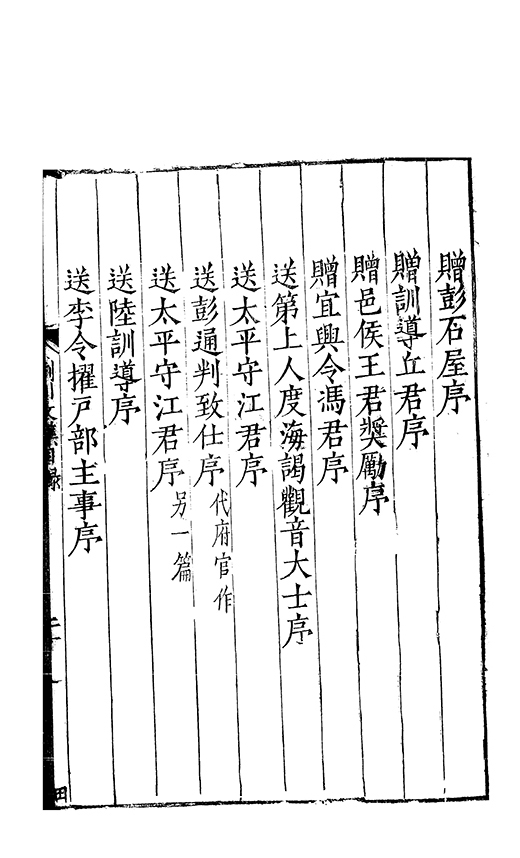 贈彭石屋序
贈訓導丘君序
贈邑侯王君獎勵序
贈宜興令馮君序
送第上人度海謁觀音大士序
送太平守江君序
送彭通判致仕序 代府官作
送太平守江君序 另一篇
送陸訓導序
送李令擢戸部主事序